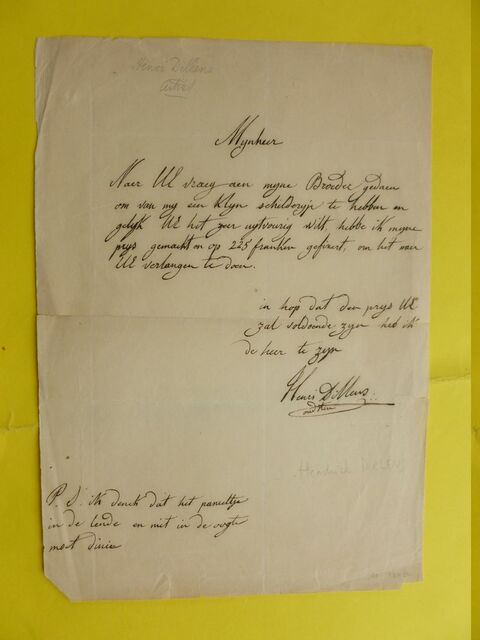 Henri Dillens
Mynheer
Naer UE vraeg aen myne Broeder gedaen
om van my een klyn schilderyn te hebben en
gelyk UE het zeer uytvourig wilt, hebbe ik myne
prys gemackt en op 225 franken gefixeert, om het naer
UE verlangen te doen.
in hop dat den prys UE
zal voldoende zyn heb ik
de heer te zyn
Henri Dillens
Hendrick DILLENS
P. S. ik denck dat het paneeltje
in de lende en niet in de oogte
moet